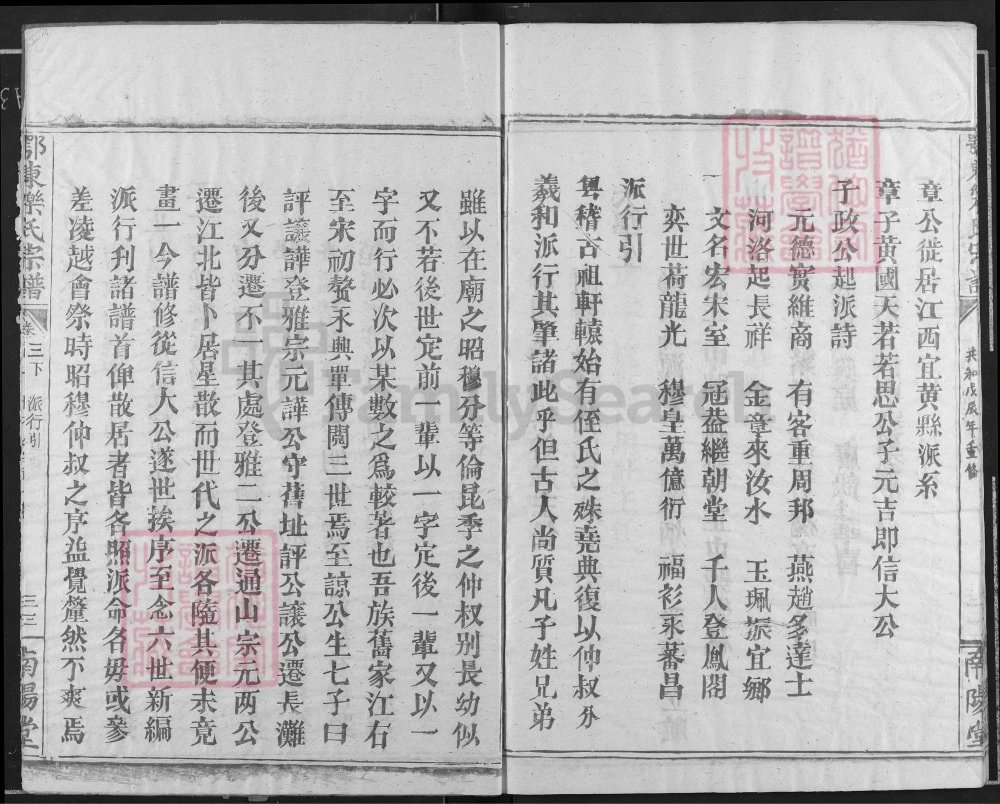 共和戊辰年重修
南陽堂
章公徙居江西宜黄縣派系
章子黄國天若若思公子元吉即信大公
子政公起派詩
元德實維商　有客重周邦　燕趙多達士
河洛起長祥　金章來汝水　玉珮振宜鄉
文名宏宋室　冠蓋繼朝堂　千人登鳳閣
奕世荷龍光　穆皇萬億衍　福衫永蕃昌
派行引
粤稽古祖軒轅始有侄氏之殊堯典復以仲叔分
羲和派行其肇諸此乎但古人尚質凡子姓兄弟
雖以在廟之昭穆分等倫昆季之仲权别長幼似
又不若後世定前一輩以一字定後一輩又以一
字而行必次以某數之爲較著也吾族舊家江右
至宋初赘永興單傳閱三世焉至諒公生七子曰
評讓譁登雅宗元譁公守舊址評公讓公遷長灘
後又分遷不一其處登雅二公遷通山宗元两公
遷江北皆卜居星散而世代之派各隨其便未竟
畫一今譜修從信大公遂世挨序至念六世新編
派行刋諸譜首俾散居者皆各照派命名毋或參
差凌越會祭時昭穆仲叔之序益覺釐然不爽焉
鄂東樂氏宗譜
卷三下
派行引
三三
南陽堂
FamilySearch